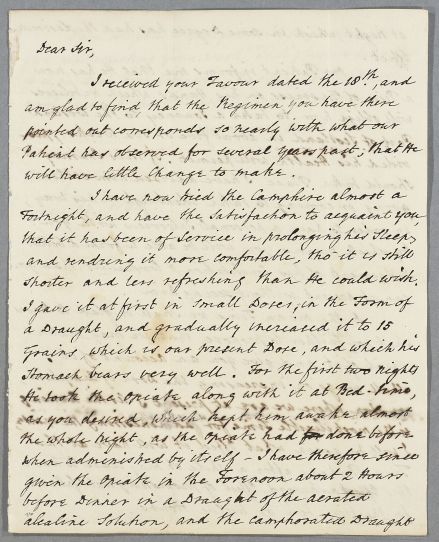 Dear Sir,
I received your Favour dated the 18th, and
am glad to find that the Regimen you have there
pointed out corresponds so nearly with what our
Patient has observed for several Years past, that He
will have little Change to make.
I have now tried the Camphire almost a
Fortnight, and have the Satisfaction to acquaint you,
that it has been of Service in prolonging his Sleep,
and rendring it more comfortable, tho' it is still
shorter and less refreshing than He could wish.
I gave it at first in small Doses, in the Form of
a Draught, and gradually increased it to 15
Grains, which is our present Dose, and which his
Stomach bears very well. For the first two nights
He took the Opiate along with it at Bed-time,
as you desired, which kept him awake almost
the whole Night, as the Opiate had done before
when administred by itself - I have therefore since
given the Opiate in the Forenoon about 2 Hours
before Dinner in a Draught of the aerated
alcaline Solution, and the Camphorated Draught